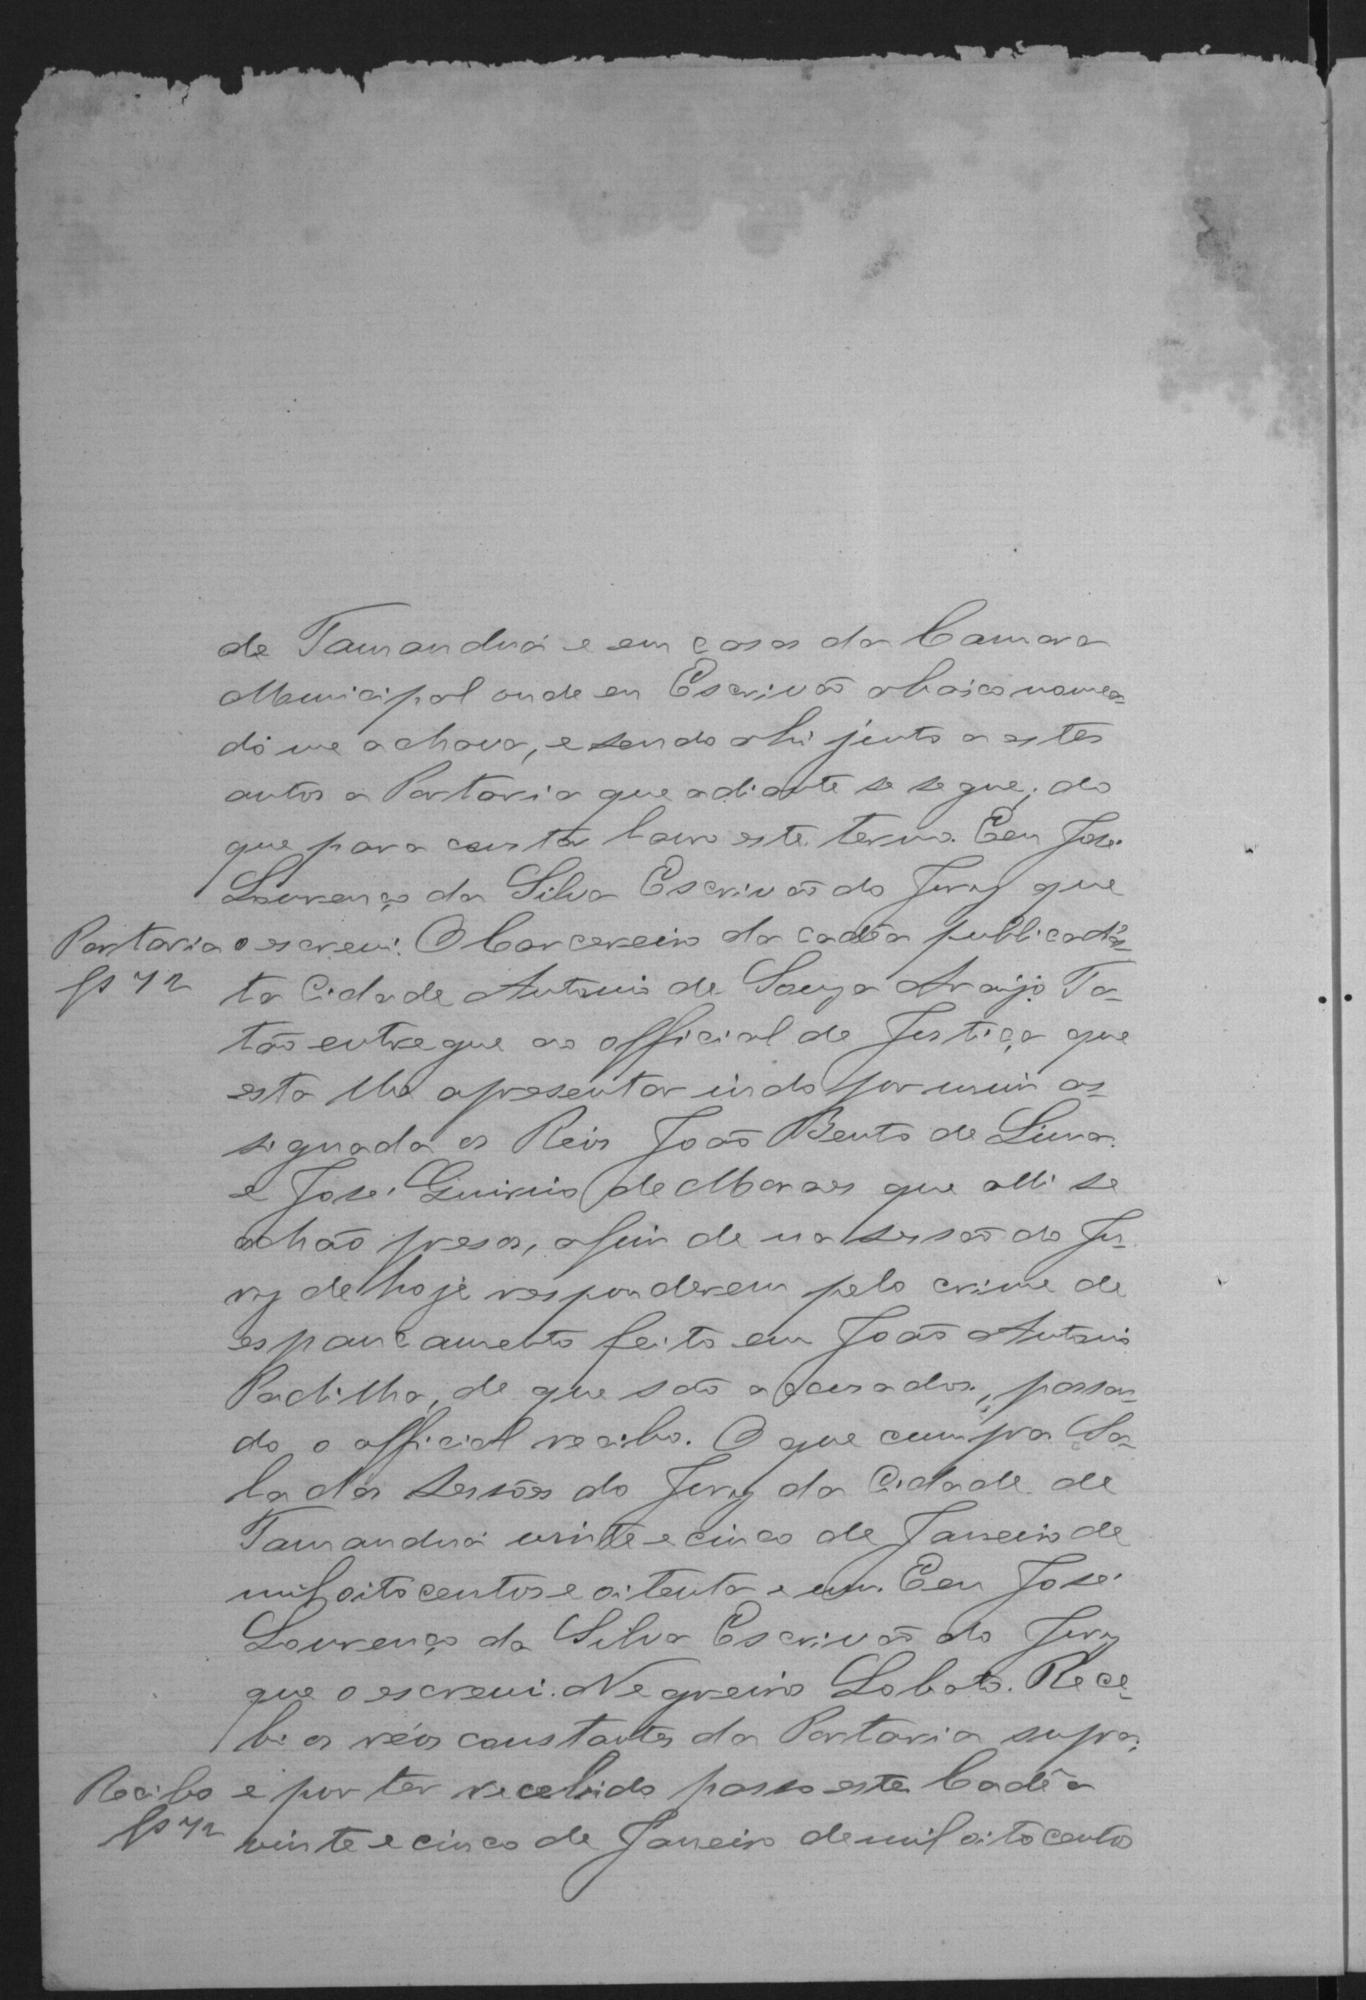 de Tamanduá e em casas da Camara
Municipal onde eu Escrivão abaico nomea-
do me achava, e sendo ahi junto a estes
autos a Portaria que adiante se segue; do
que para constar lavro este termo. Eeu José
Lourenço da Silva Escrivão do Jury que
Portaria o escrevi. O Carcereiro da cadêa publica d'es-
fs 72 ta Cidade Antonio de Souza Araujo Ta-
tão entregue ao official de Justiça que
esta lhe apresentar indo por mim as-
signada os Reis João Bento de Lima
e José Guirino de Moraes que alli se
achão presos, afim de na sessão do Ju-
ry de hoje responderem pelo crime de
espancamento feito em João Antonio
Padilha, de que são accusados, passan-
do o official recibo. O que cumpra Sa-
la das Sessões do Jury da Cidade de
Tamanduá vinte e cinco de Janeiro de
mil oito centos e oitenta e um. Eeu José
Lourenço da Silva Escrivão do Jury
que o escrevi. Negreiro Lobato. Rece-
bi os réos constantes da Portaria supra,
Recibo e por ter recebido passo este Cadêa
fs 72 vinte e cinco de Janeiro de mil oito centos